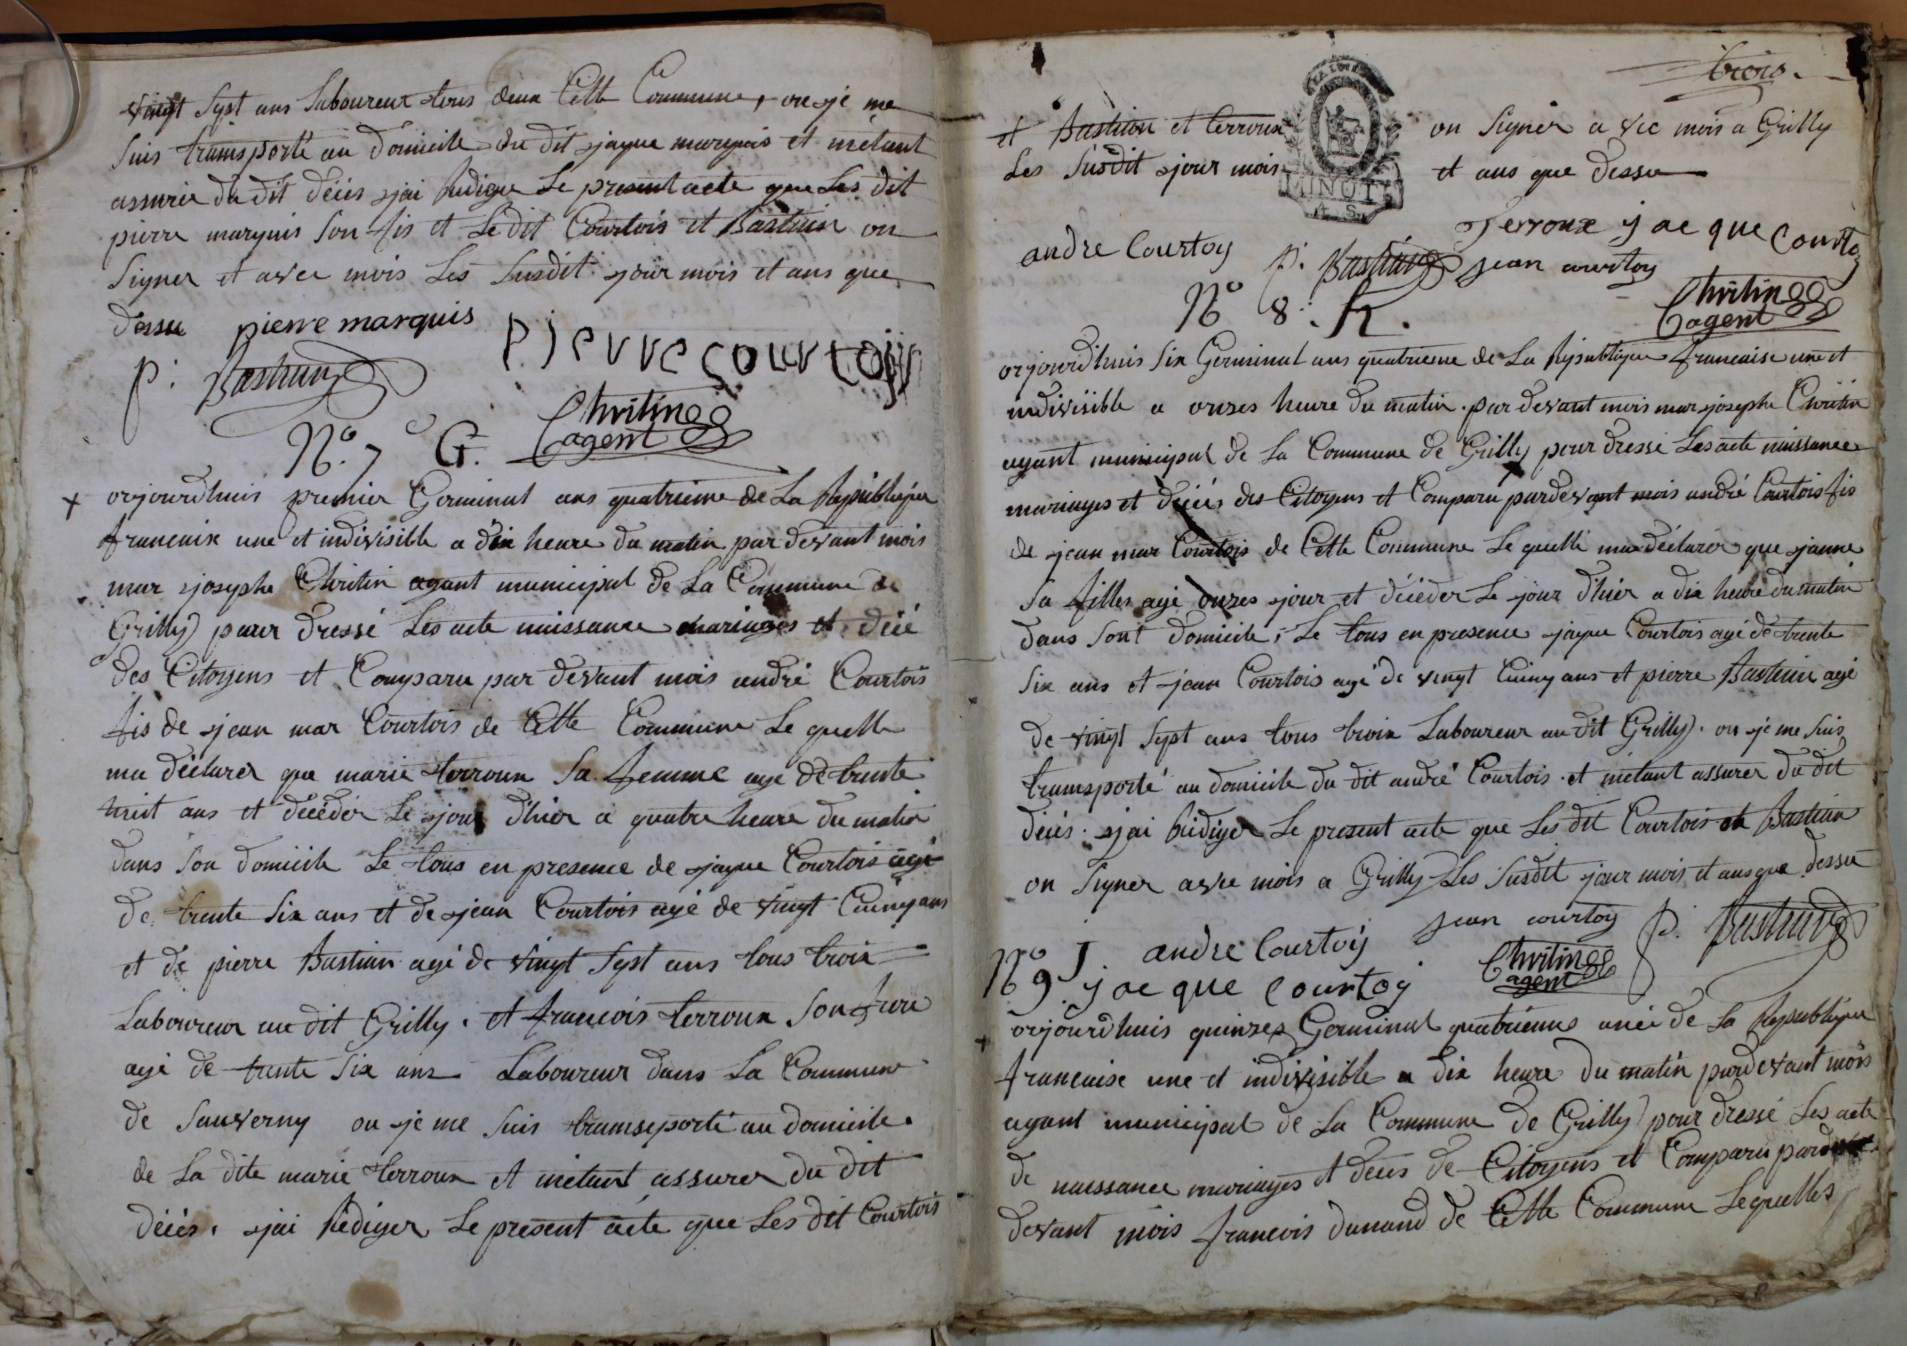 vingt sept ans Laboureur tous deux Cette Commune, ou je me
suis transporté au domicile du dit jaque marquis et métant
assurée du dit décès jai Rediger Le present acte que Les dit
pierre marquis son fis et Le dit Courtois et Bastian on
signer et avec mois Les susdit jour mois et ans que
dessu pierre marquis
pierre courtois
p: Bastian
Chritin
agent
N° 7 G.
+ orjourdhuis premier Germinal ans quatrieme de La Republique
francaix une et indivisible a dix heure du matin par devant mois
mar josephe Chritin agant municipal de La Commune de
Grilly pour dressé Les acte naissance mariages et décé
des Citoyens et Comparu par devant mois andré Courtois
fis de jean mar Courtois de Cette Commune Le quelle
ma déclarer que marie terroux sa femme age de trente
huit ans et décéder Le jour dhier a quatre heure du matin
dans son domicile Le tous en presence de jaque Courtois agé
de trente six ans et de jean Courtois agé de vingt Cuinq ans
et de pierre Bastian agé de vingt sept ans tous troix
Laboureur au dit Grilly. et francois terroux son frere
agé de trente six ans Laboureur dans La Commune
de sauverny ou je me suis transeporté au domicile
de La dite marie terroux et métant assurer du dit
décés. jai Rédiger Le present acte que Les dit Courtois
trois.
et Bastian et terroux on signer a vec mois a Grilly
Les susdit jour mois et ans que dessu
MINOTE
terroux jacque courtoy
andre Courtoy p: Bastian jean courtoy
N° 8. h.
Chritin
agent
orjourdhuis six Germinal ans quatrieme de La Republique francaise une et
indivisible a onzes heure du matin par devant mois mar josephe Chritin
agant municipal de La Commune de Grilly pour dressé Les acte naissance
mariages et décés des Citoyens et Comparu par devant mois andré Courtois fis
de jean mar Courtois de Cette Commune Le quelle ma déclarer que janne
sa filles agé onzes jour et décéder Le jour dhier a dix heure du matin
dans sont domicile, Le tous en presence jaque Courtois agé de trente
six ans et jean Courtois agé de vingt Cuinq ans et pierre Bastian agé
de vingt sept ans tous troix Laboureur au dit Grilly. ou je me suis
transporté au domicile du dit andré Courtois. et métant assurer du dit
décés. jai Rédiger Le present acte que Les dit Courtois et Bastian
on signer avre mois a Grilly Les susdit jour mois et ans que dessu
jean courtoy p. Bastian
andre Courtoy
N° 9 J jacque courtoy
Chritin
agent
+ orjourdhuis quinzes Germinal quatriemes anée de La Republique
francaise une et indivisible a dix heure du matin pardevant mois
agant municipal de La Commune de Grilly pour dressé Les acte
de naissance mariages et décés de Citoyens et Comparu par
devant mois francois dunand de Cette Commune Lequelles